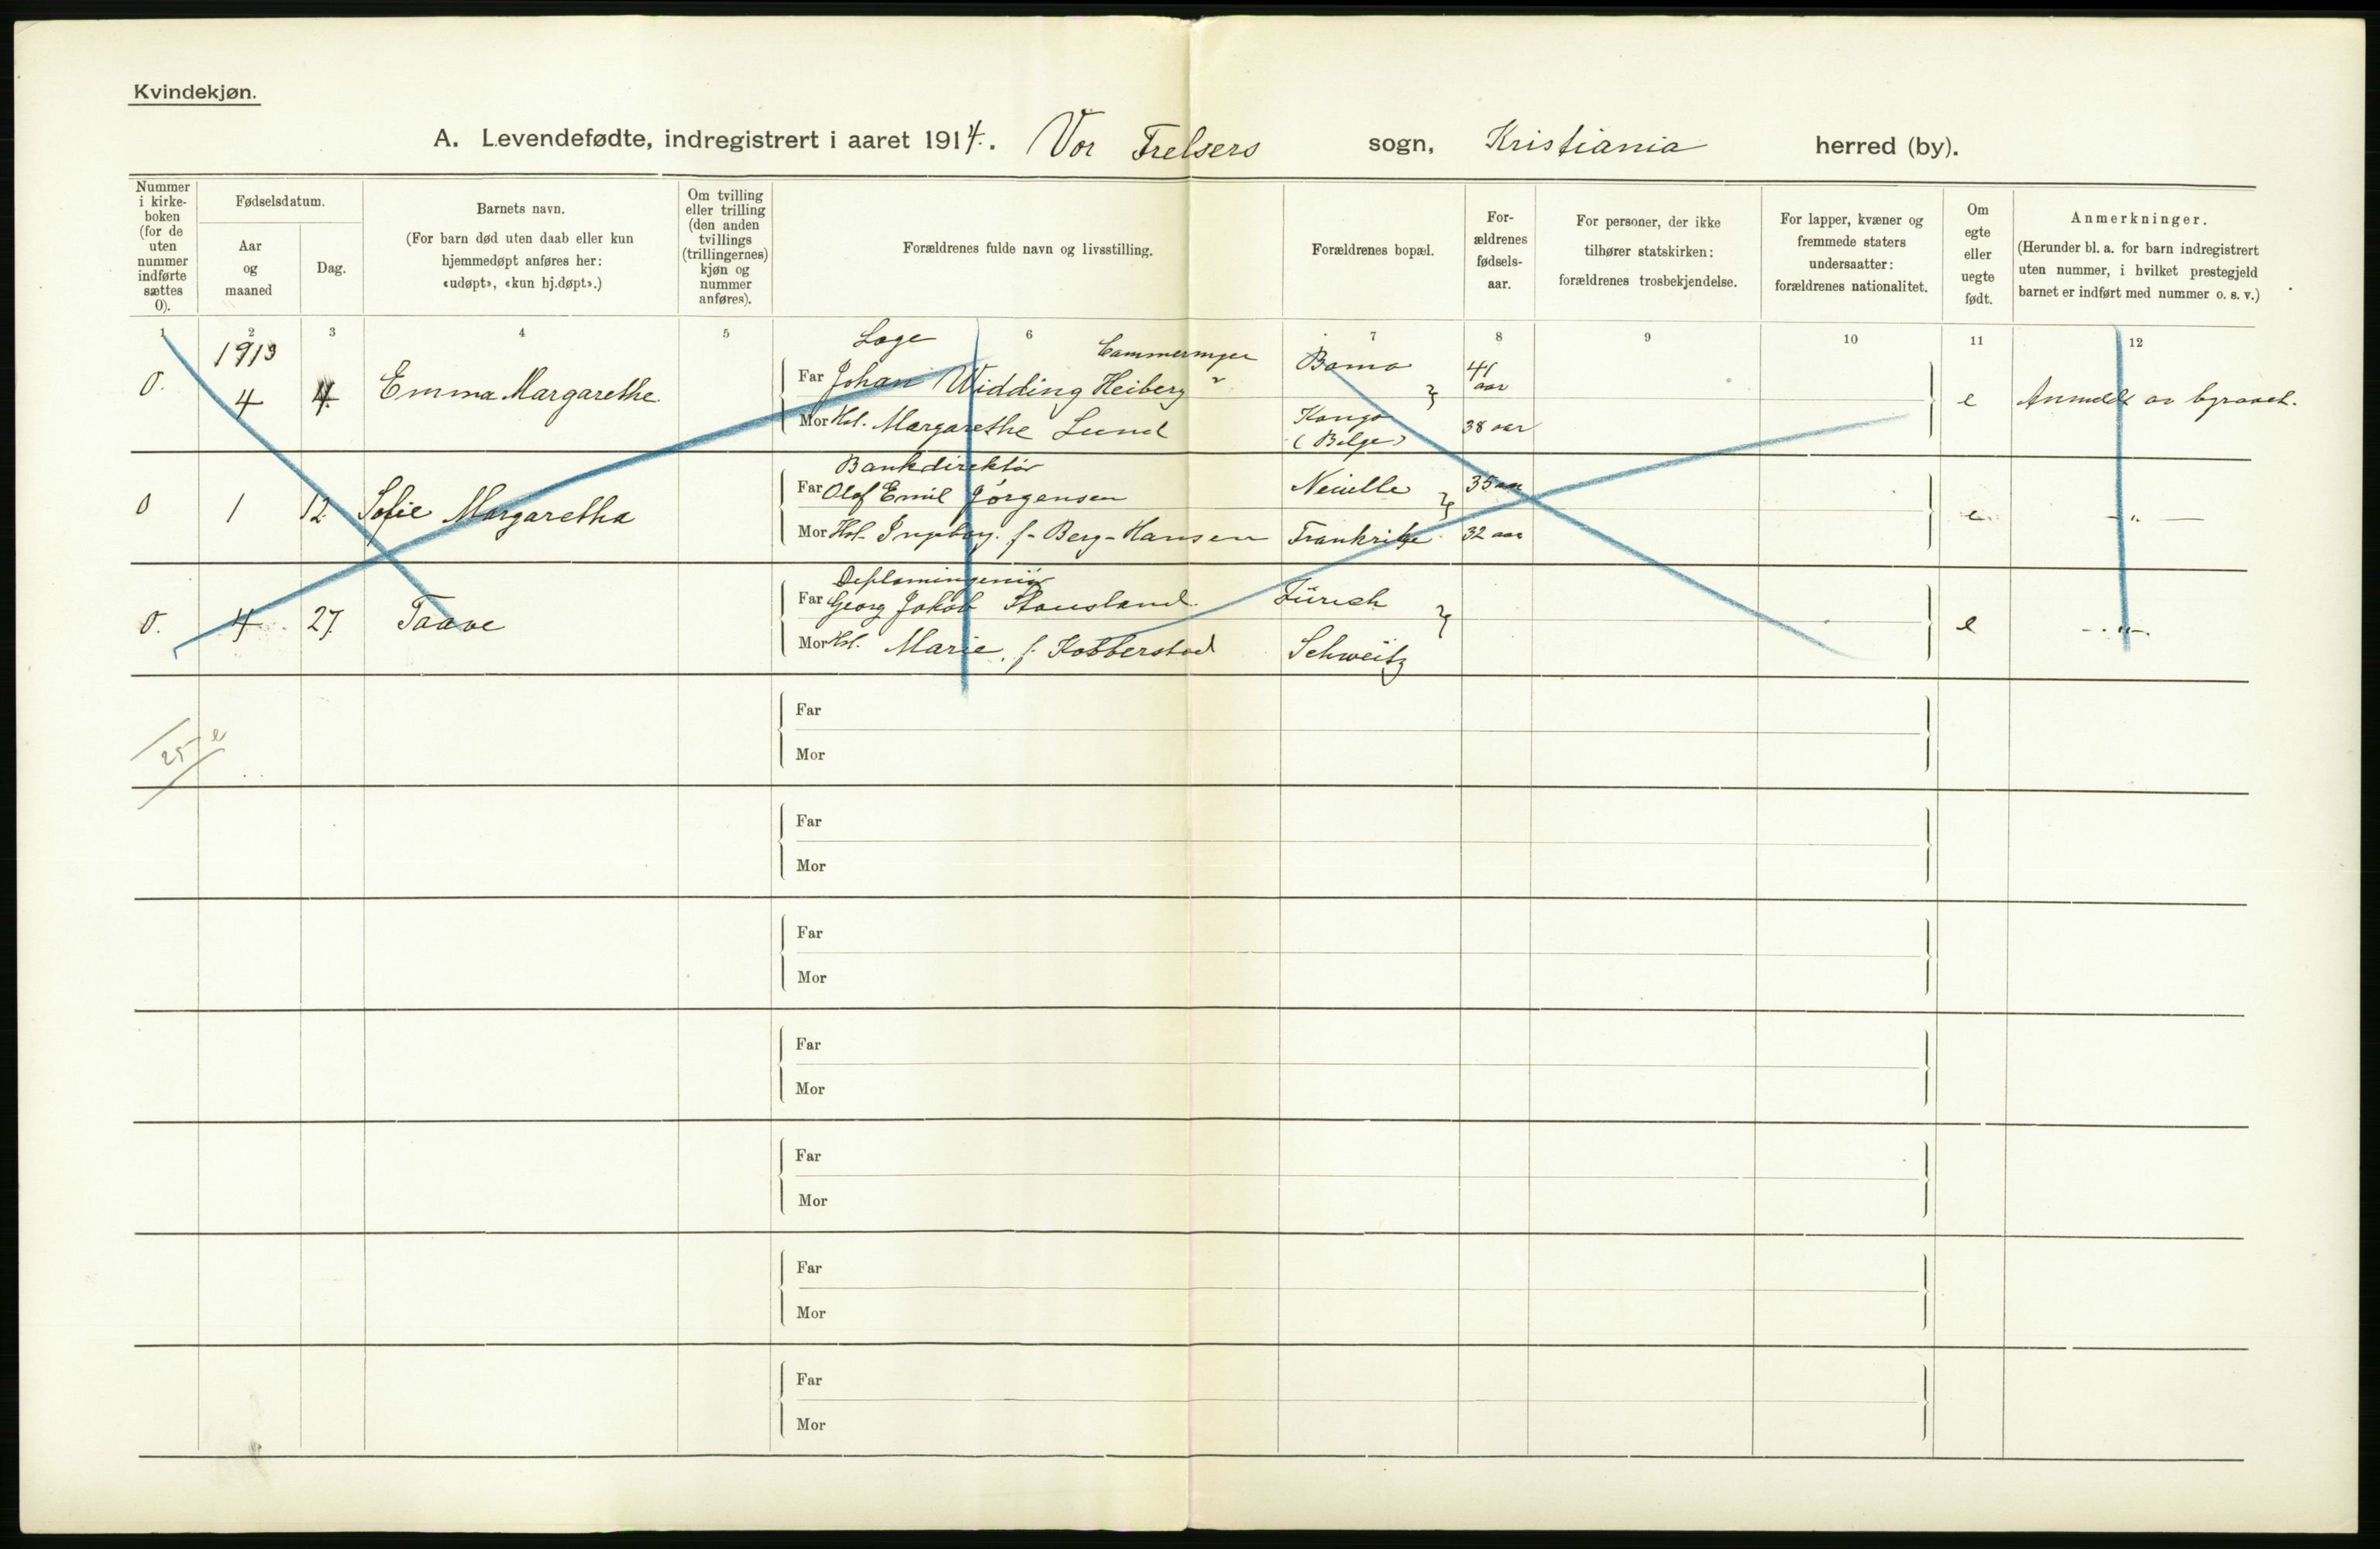 Kvindekjøn.
A. Levendefødte, indregistrert i aaret 1914. Vor Frelsers sogn, Kristiania herred (by).
Nummer i kirke-boken (for de uten nummer indførte sættes 0).
Fødselsdatum.
Aar og maaned
Dag.
Barnets navn.
(For barn død uten daab eller kun hjemmedøpt anføres her: «udøpt», «kun hj.døpt».)
Om tvilling eller trilling (den anden tvillings (trillingernes) kjøn og nummer anføres).
Forældrenes fulde navn og livsstilling.
Forældrenes bopæl.
For-ældrenes fødsels-aar.
For personer, der ikke tilhører statskirken: forældrenes trosbekjendelse.
For lapper, kvæner og fremmede staters undersaatter: forældrenes nationalitet.
Om egte eller uegte født.
Anmerkninger.
(Herunder bl. a. for barn indregistrert uten nummer, i hvilket prestegjeld barnet er indført med nummer o. s. v.)
1 2 3 4 5 6 7 8 9 10 11 12
1913
0. 4 4. Emma Margarethe.
Læge
Far Johan Widding Heiberg
Mor Hst. Margarethe Lund
Boma
Kongo
(Belge)
41 aar
38 aar
e Anmeldt av byraaet.
0 1 12 Sofie Margaretha
Bankdirektør
Far Olof Emil Jørgensen
Mor Hst. Ingeborg f. Berg-Hansen
Neuille
Frankrike
35 aar
32 aar
e -"-
0. 4 27. Taave
Diplomingeniør
Far Georg Jakob Stousland
Mor Hst. Marie, f. Kobberstad
Zürich
Schweitz
e -"-
25 e
Far
Mor
Far
Mor
Far
Mor
Far
Mor
Far
Mor
Far
Mor
Far
Mor